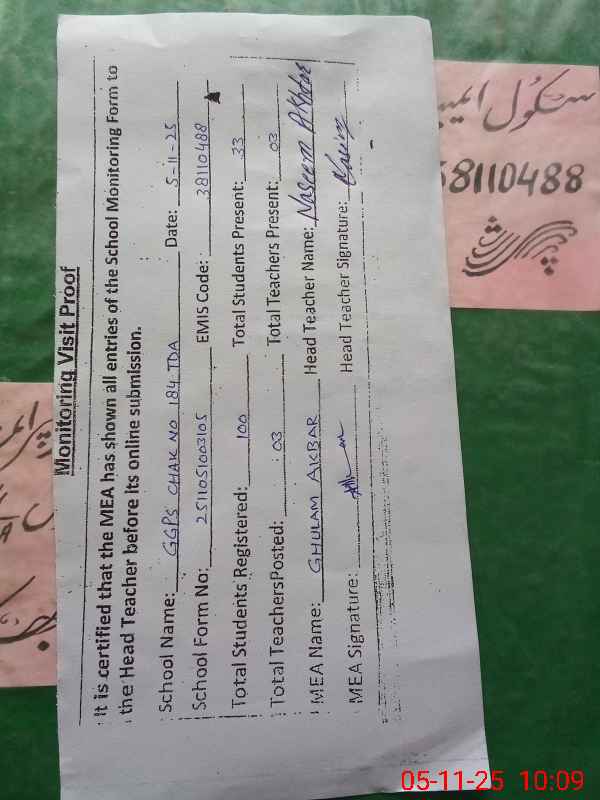 Monitoring Visit Proof
It is certified that the MEA has shown all entries of the School Monitoring Form to
the Head Teacher before its online submission.
School Name: GGPS CHAK NO 184 TDA Date: 5-11-25
School Form No: 2511051003105 EMIS Code: 38110488
Total Students Registered: 100 Total Students Present: 33
Total TeachersPosted: 03 Total Teachers Present: 03
MEA Name: GHULAM AKBAR Head Teacher Name: Naseem Akhtar
MEA Signature: Head Teacher Signature:
سکول ایمیس
38110488
05-11-25 10:09